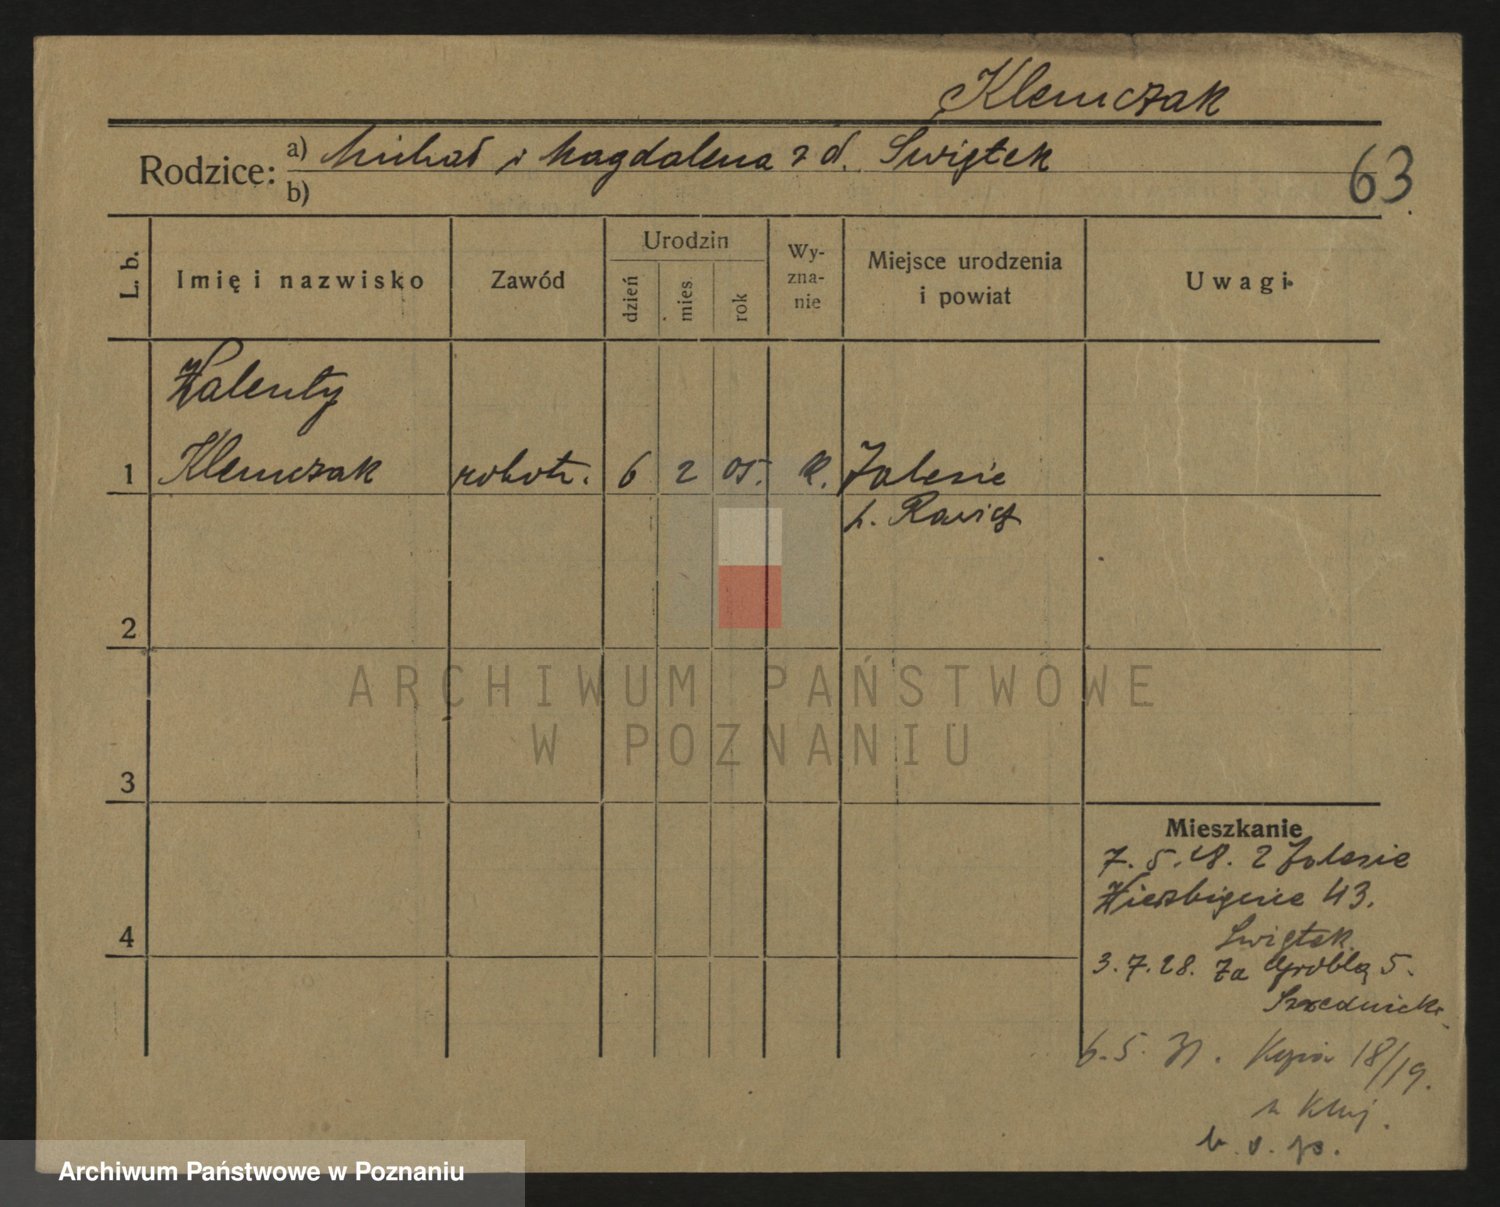 Klemczak
Rodzice: a) Michał i Magdalena z d. Swiętek
b)
63
L. b.
Imię i nazwisko
Zawód
Urodzin
dzień
mies.
rok
Wy-
zna-
nie
Miejsce urodzenia
i powiat
Uwagi
Walenty
1 Klemczak robotn. 6 2 05. k. Zalesie
p. Rawicz
2
3
4
ARCHIWUM PAŃSTWOWE
W POZNANIU
Mieszkanie
7. 5. 28. z Zalesie
Wierzbięcice 43.
Swiętek.
3. 7. 28. Za Groblą 5.
6. 5. 31. 18/19.
Archiwum Państwowe w Poznaniu